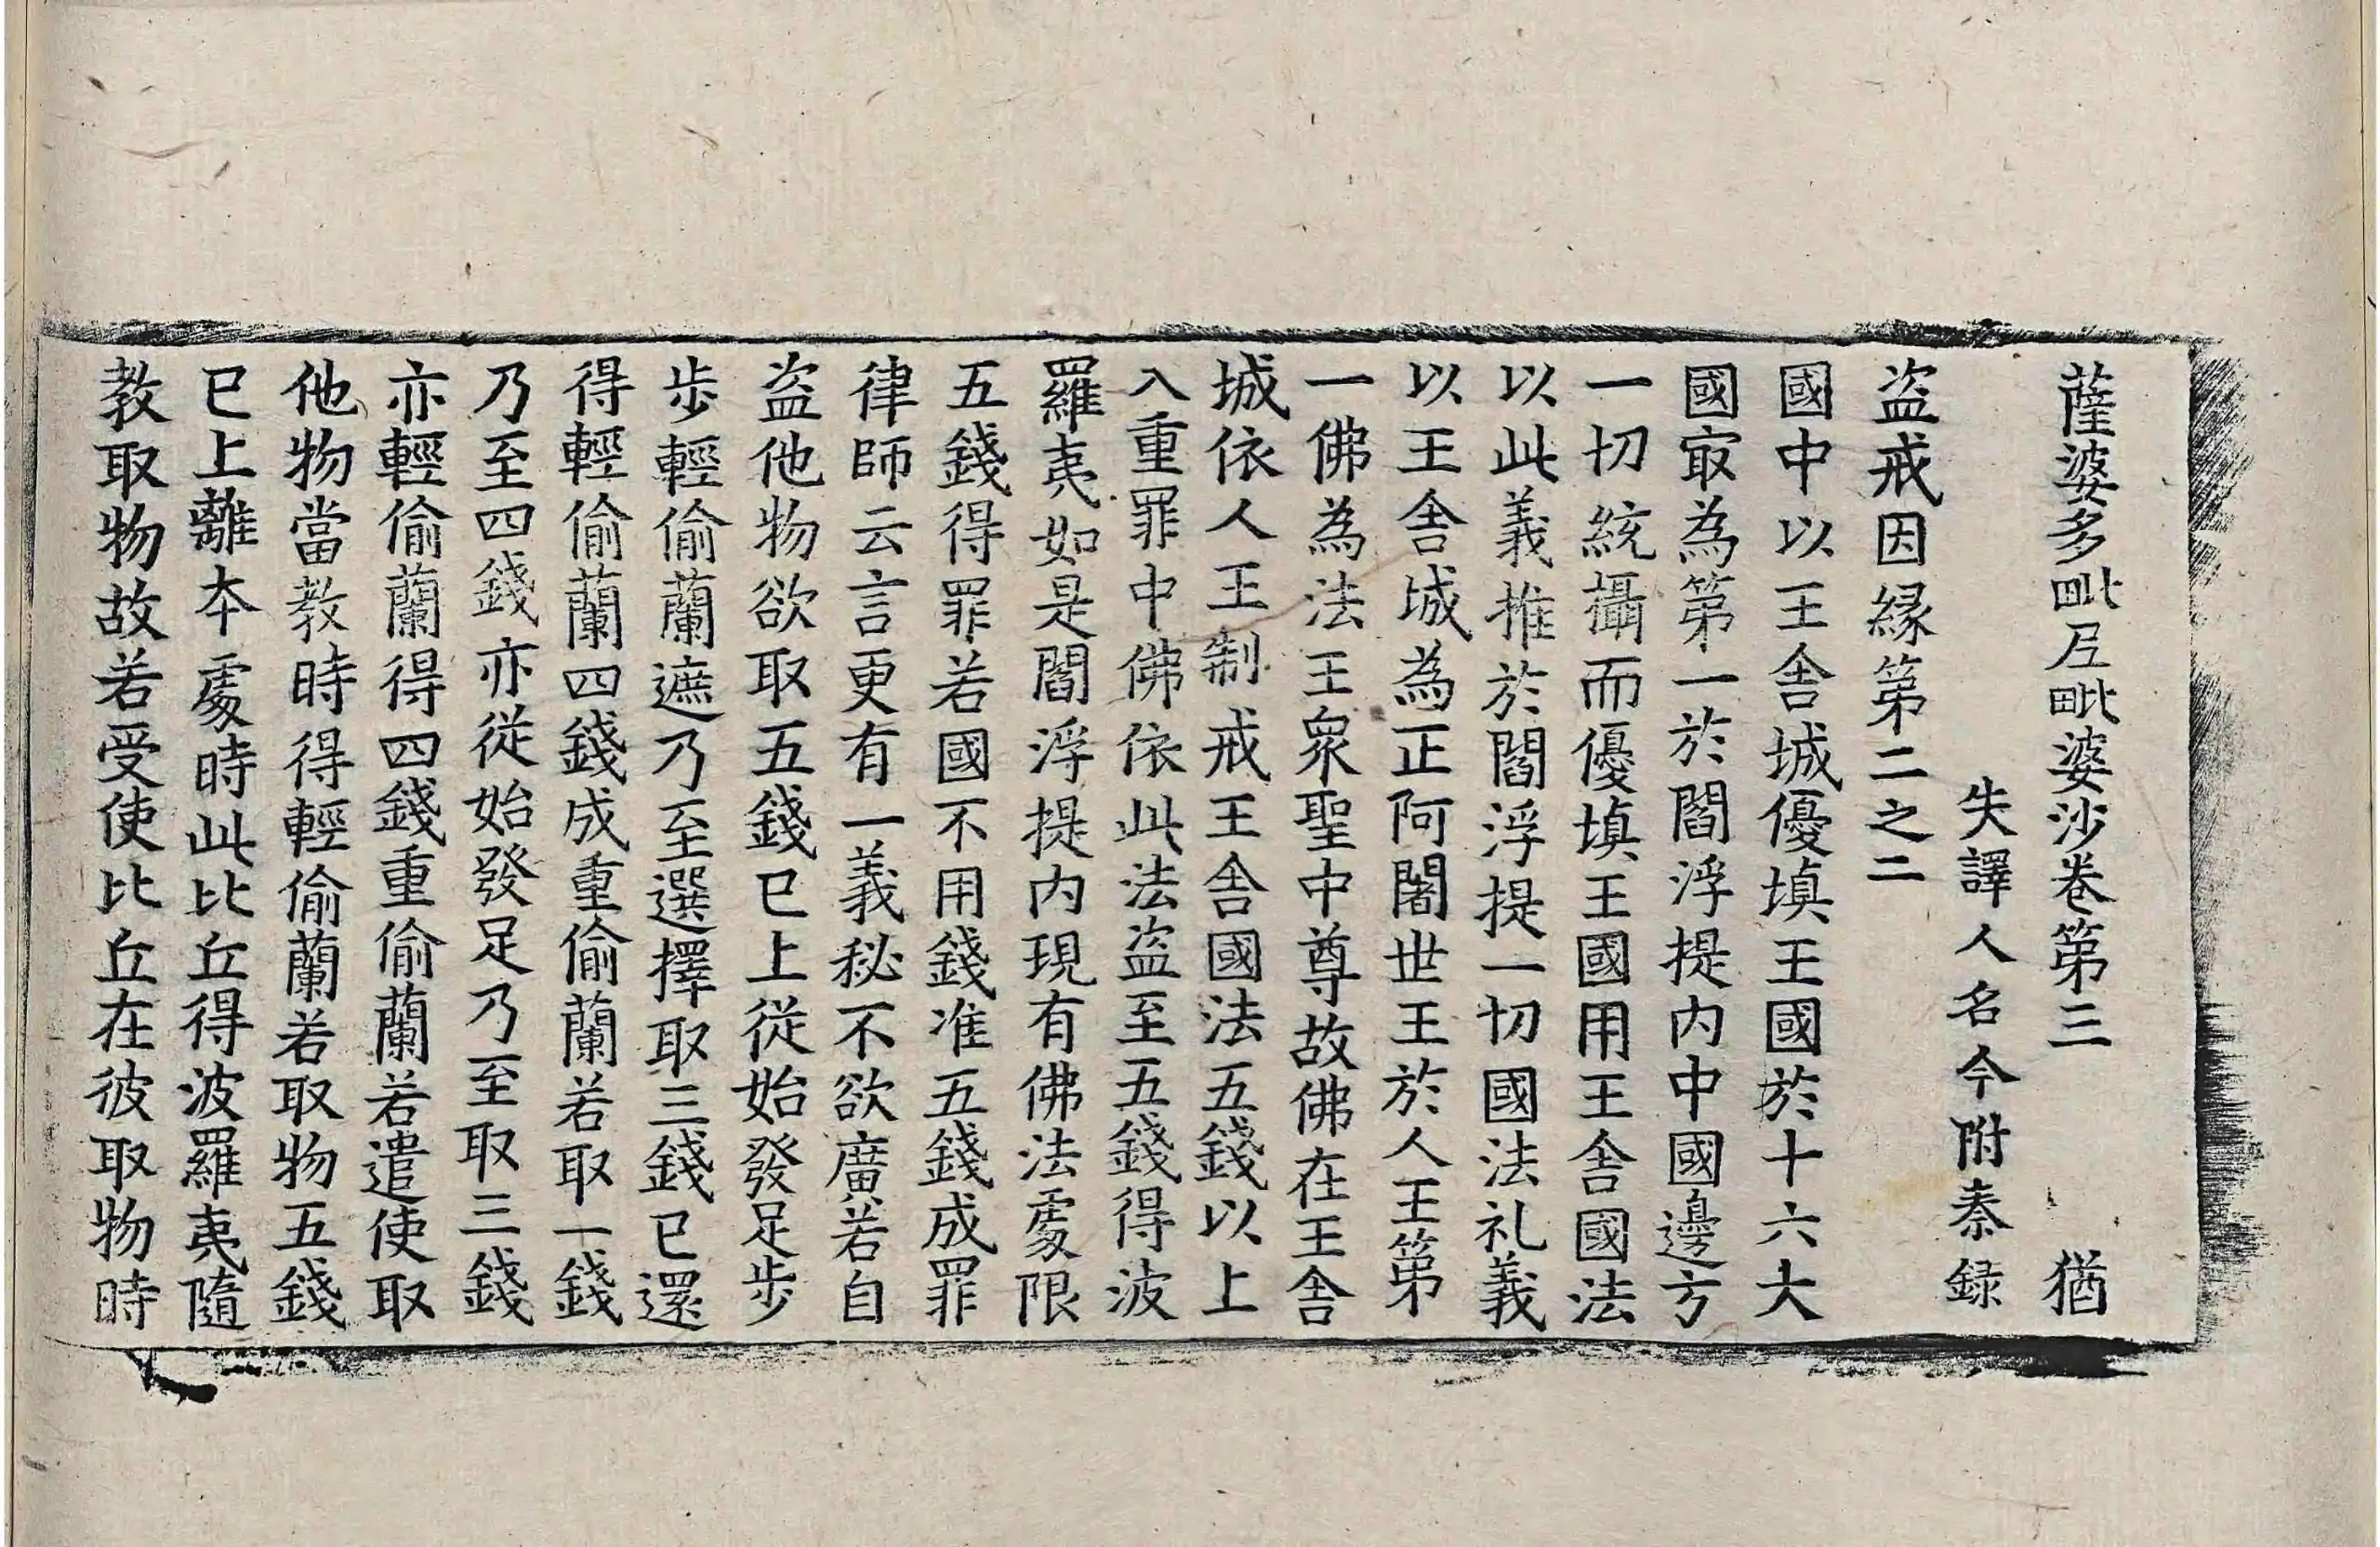 薩婆多毗尼毗婆沙卷第三 猶
失譯人名今附秦錄
盜戒因縁第二之二
國中以王舍城優填王國於十六大
國㝡為第一於閻浮提内中國邊方
一切統攝而優填王國用王舍國法
以此義推於閻浮提一切國法礼義
以王舍城為正阿闍世王於人王第
一佛為法王衆聖中尊故佛在王舍
城依人王制戒王舍國法五錢以上
入重罪中佛依此法盜至五錢得波
羅夷如是閻浮提内現有佛法處限
五錢得罪若國不用錢准五錢成罪
律師云言更有一義秘不欲廣若自
盜他物欲取五錢已上從始發足步
步輕偷蘭遮乃至選擇取三錢已還
得輕偷蘭四錢成重偷蘭若取一錢
乃至四錢亦從始發足乃至取三錢
亦輕偷蘭得四錢重偷蘭若遣使取
他物當教時得輕偷蘭若取物五錢
已上離本處時此比丘得波羅夷隨
教取物故若受使比丘在彼取物時